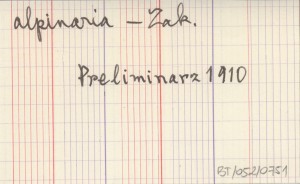 alpinaria – Zak.
Preliminarz 1910
BT/052/0751